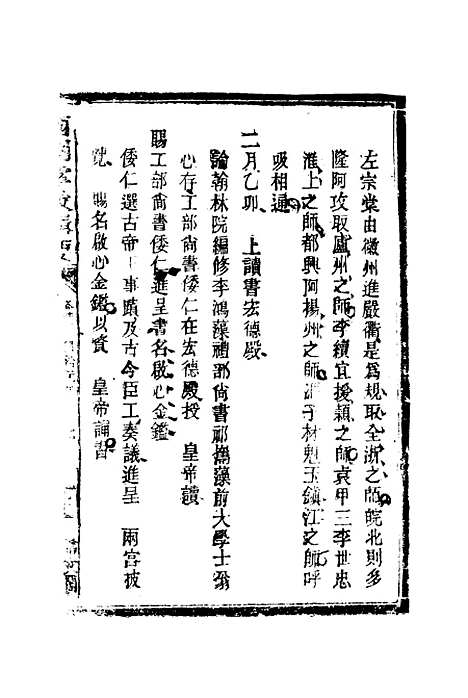 左宗棠由徽州進嚴衢是為規取全浙之師皖北則多
隆阿攻取廬州之師李續宜援潁之師袁甲三李世忠
淮上之師都興阿揚州之師馮子材魁玉鎮江之師呼
吸相通
二月乙卯 上讀書宏德殿
諭翰林院編修李鴻藻禮部尚書祁寯藻前大學士翁
心存工部尚書倭仁在宏德殿授 皇帝讀
賜工部尚書倭仁進呈書名啟心金鑑
倭仁選古帝王事蹟及古今臣工奏議進呈 兩宮披
覽 賜名啟心金鑑以資 皇帝誦習